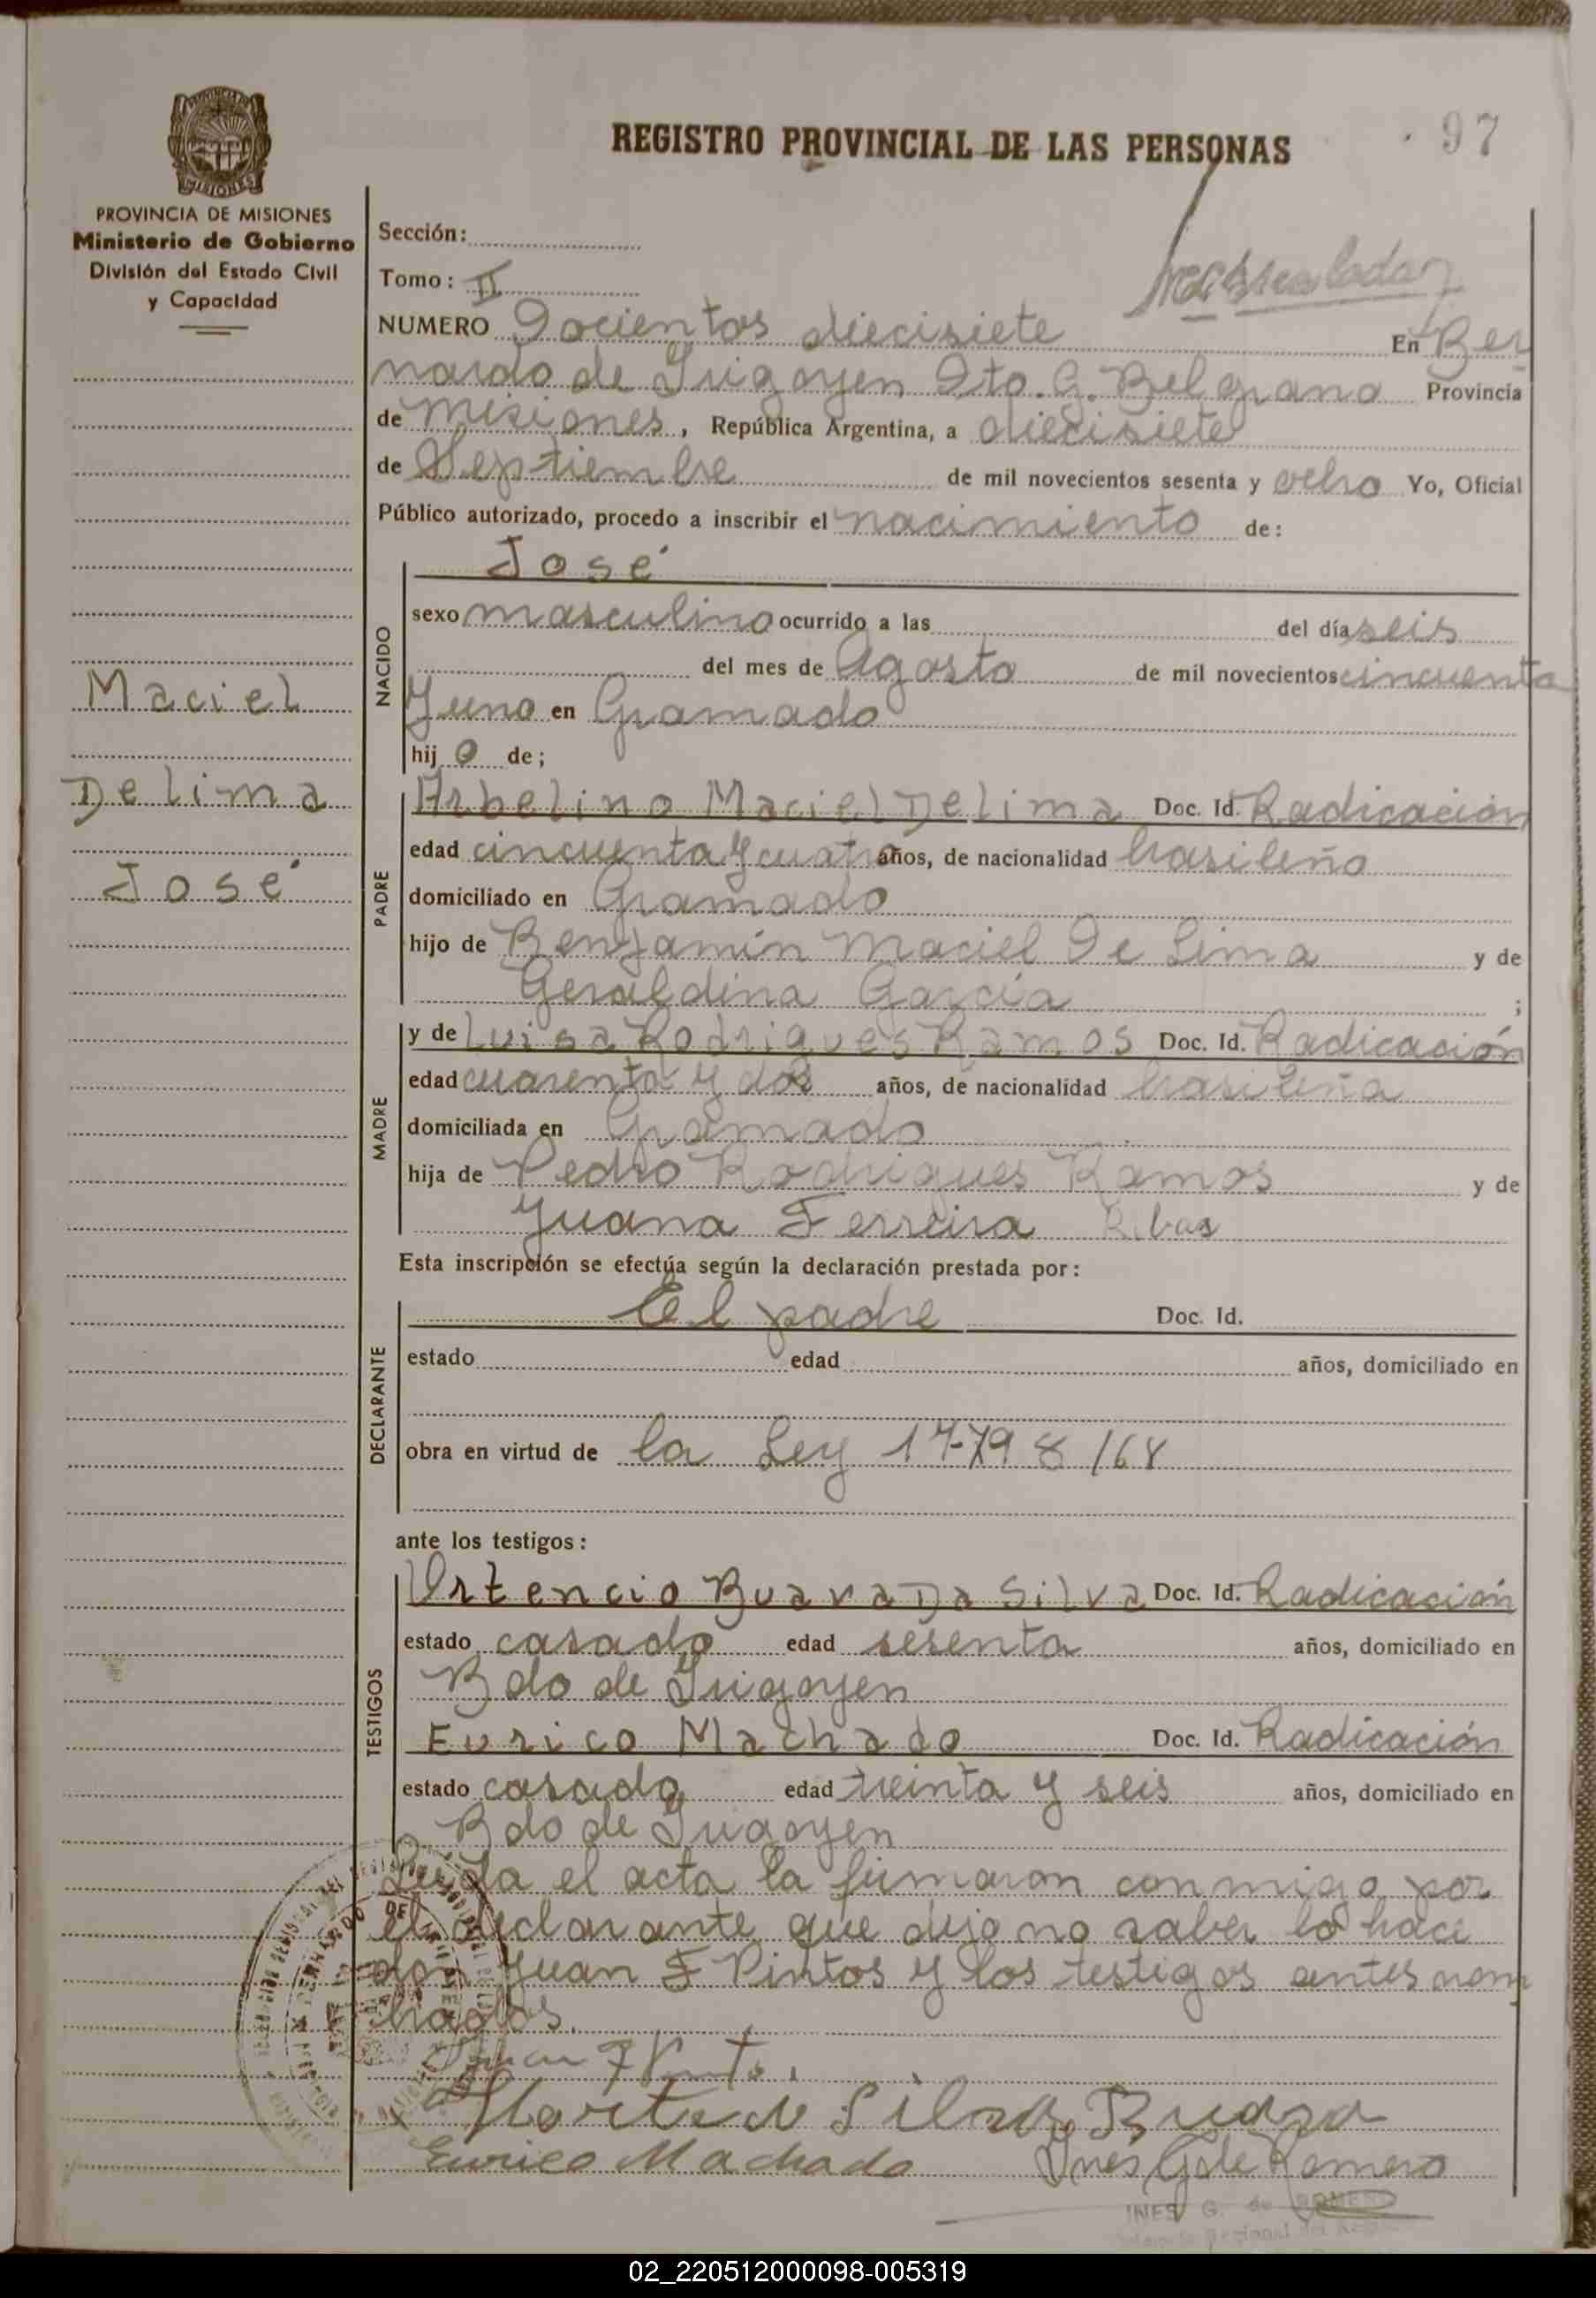 REGISTRO PROVINCIAL DE LAS PERSONAS
97
PROVINCIA DE MISIONES
Ministerio de Gobierno
División del Estado Civil
y Capacidad
Sección:
Tomo: II
NUMERO Docientos diecisiete En Ber
nardo de Irigoyen Dto. G. Belgrano Provincia
de Misiones, República Argentina, a diecisiete
de Septiembre de mil novecientos sesenta y ocho Yo, Oficial
Público autorizado, procedo a inscribir el nacimiento de:
José
sexo masculino ocurrido a las del día seis
del mes de Agosto de mil novecientos cincuenta
y uno en Gramado
hijo de;
NACIDO
Maciel
De lima
José
Arbelino Maciel De lima Doc. Id. Radicación
edad cincuenta y cuatro años, de nacionalidad brasileño
domiciliado en Gramado
hijo de Benjamín Maciel De Lima y de
Geraldina García ;
PADRE
y de Luisa Rodrigues Ramos Doc. Id. Radicación
edad cuarenta y dos años, de nacionalidad brasileña
domiciliada en Gramado
hija de Pedro Rodrigues Ramos y de
Juana Ferreira Ribas
MADRE
Esta inscripción se efectúa según la declaración prestada por:
El padre Doc. Id.
estado edad años, domiciliado en
obra en virtud de la Ley 17-798/68
DECLARANTE
ante los testigos:
Ortencio Buava Da Silva Doc. Id. Radicación
estado casado edad sesenta años, domiciliado en
Bdo de Irigoyen
Eurico Machado Doc. Id. Radicación
estado casado edad treinta y seis años, domiciliado en
Bdo de Irigoyen
TESTIGOS
Leída el acta la firmaron conmigo por
el declarante que dijo no saber lo hace
don Juan F Pintos y los testigos antes nom
brados.
Juan F Pintos
Silva Buava
Eurico Machado Ines G de Romero
INES G. de ROMERO
02_220512000098-005319